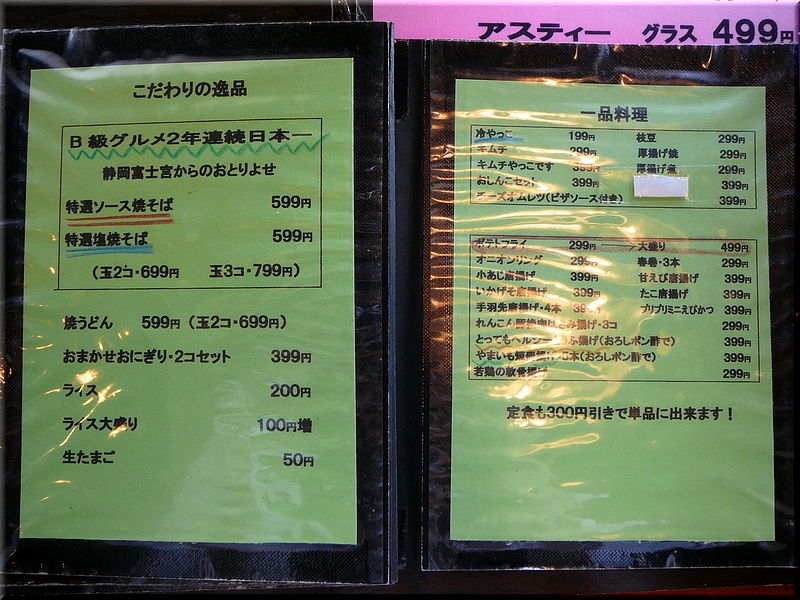 アスティー グラス 499円
こだわりの逸品
B級グルメ2年連続日本一
静岡富士宮からのおとりよせ
特選ソース焼そば 599円
特選塩焼そば 599円
(玉2コ・699円 玉3コ・799円)
焼うどん 599円 (玉2コ・699円)
おまかせおにぎり・2コセット 399円
ライス 200円
ライス大盛り 100円増
生たまご 50円
一品料理
冷やっこ 199円 枝豆 299円
キムチ 299円 厚揚げ焼 299円
キムチやっこです 399円 厚揚げ煮 299円
おしんこセット 399円 399円
チーズオムレツ(ピザソース付き) 399円
ポテトフライ 299円 大盛り 499円
オニオンリング 299円 春巻・3本 299円
小あじ唐揚げ 399円 甘えび唐揚げ 399円
いかげそ唐揚げ 399円 たこ唐揚げ 399円
手羽先唐揚げ・4本 399円 プリプリミニえびかつ 399円
れんこん はさみ揚げ・3コ 299円
とってもヘルシー 揚げ(おろしポン酢で) 399円
やまいも 揚げ・5本(おろしポン酢で) 399円
若鶏の軟骨揚げ 299円
定食も300円引きで単品に出来ます!